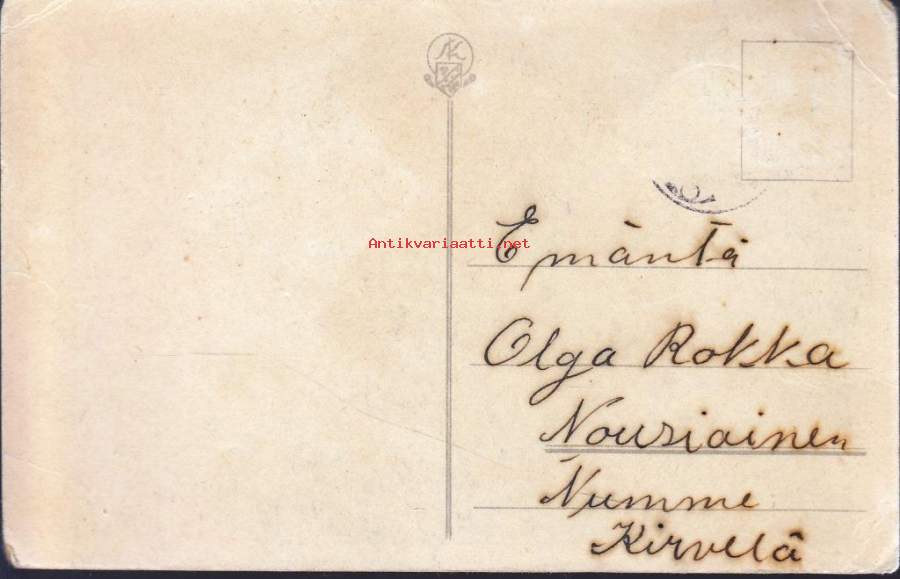 NK
Antikvariaatti.net
Emäntä
Olga Rokka
Nousiainen
Numme
Kirvelä